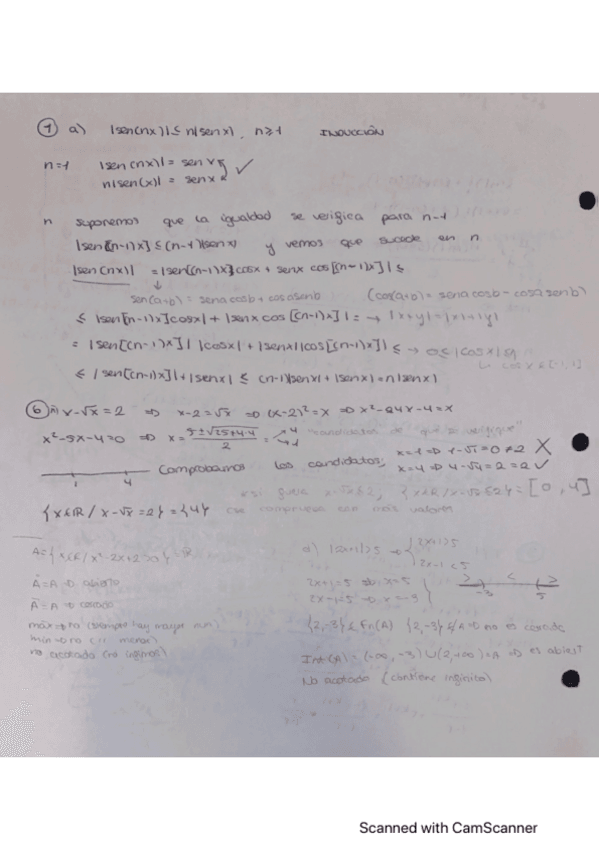 ① a) |sen(nx)| ≤ n|senx|, n≥1 INDUCCIÓN
n=1 |sen(nx)| = senx
n|sen(x)| = senx ✓
n suponemos que la igualdad se verifica para n-1
|sen[(n-1)x]| ≤ (n-1)|senx| y vemos que sucede en n
|sen(nx)| = |sen[(n-1)x]cosx + senx cos[(n-1)x]| ≤
sen(a+b) = sena cosb + cosa senb (cos(a+b) = sena cosb - cosa senb)
≤ |sen[(n-1)x]cosx| + |senx cos[(n-1)x]| = → |x+y| = |x|+|y|
= |sen[(n-1)x]| |cosx| + |senx||cos[(n-1)x]| ≤ → 0≤|cosx|≤1
↳ cosx ∈ [-1,1]
≤ |sen[(n-1)x]| + |senx| ≤ (n-1)|senx| + |senx| = n|senx|
⑥ x-√x = 2 ⇒ x-2 = √x ⇒ (x-2)² = x ⇒ x²-4x-4 = x
x²-5x-4=0 ⇒ x = 5±√25+4·4 / 2 = 4 1 "candidatos de que se verifique"
x=1 ⇒ 1-√1 = 0 ≠ 2 X
Comprobamos los candidatos; x=4 ⇒ 4-√4 = 2 = 2 ✓
1 4
*si fuera x-√x≤2, {x∈ℝ / x-√x≤2} = [0,4]
{x∈ℝ / x-√x = 2} = {4} se comprueba con más valores
A = {x∈ℝ / x²-2x+2>0} = ℝ
Å = A ⇒ abierto
Ā = A ⇒ cerrado
máx ⇒ no (siempre hay mayor num)
mín ⇒ no (" menor)
no acotado (no infinito)
d) |2x+1|>5 ⇒ { 2x+1>5
2x-1<5
-3
{2,-3} ∈ Fr(A) {2,-3} ∉ A ⇒ no es cerrado
Int(A) = (-∞,-3)∪(2,+∞) = A ⇒ es abiert
No acotada (contiene infinito)
Scanned with CamScanner